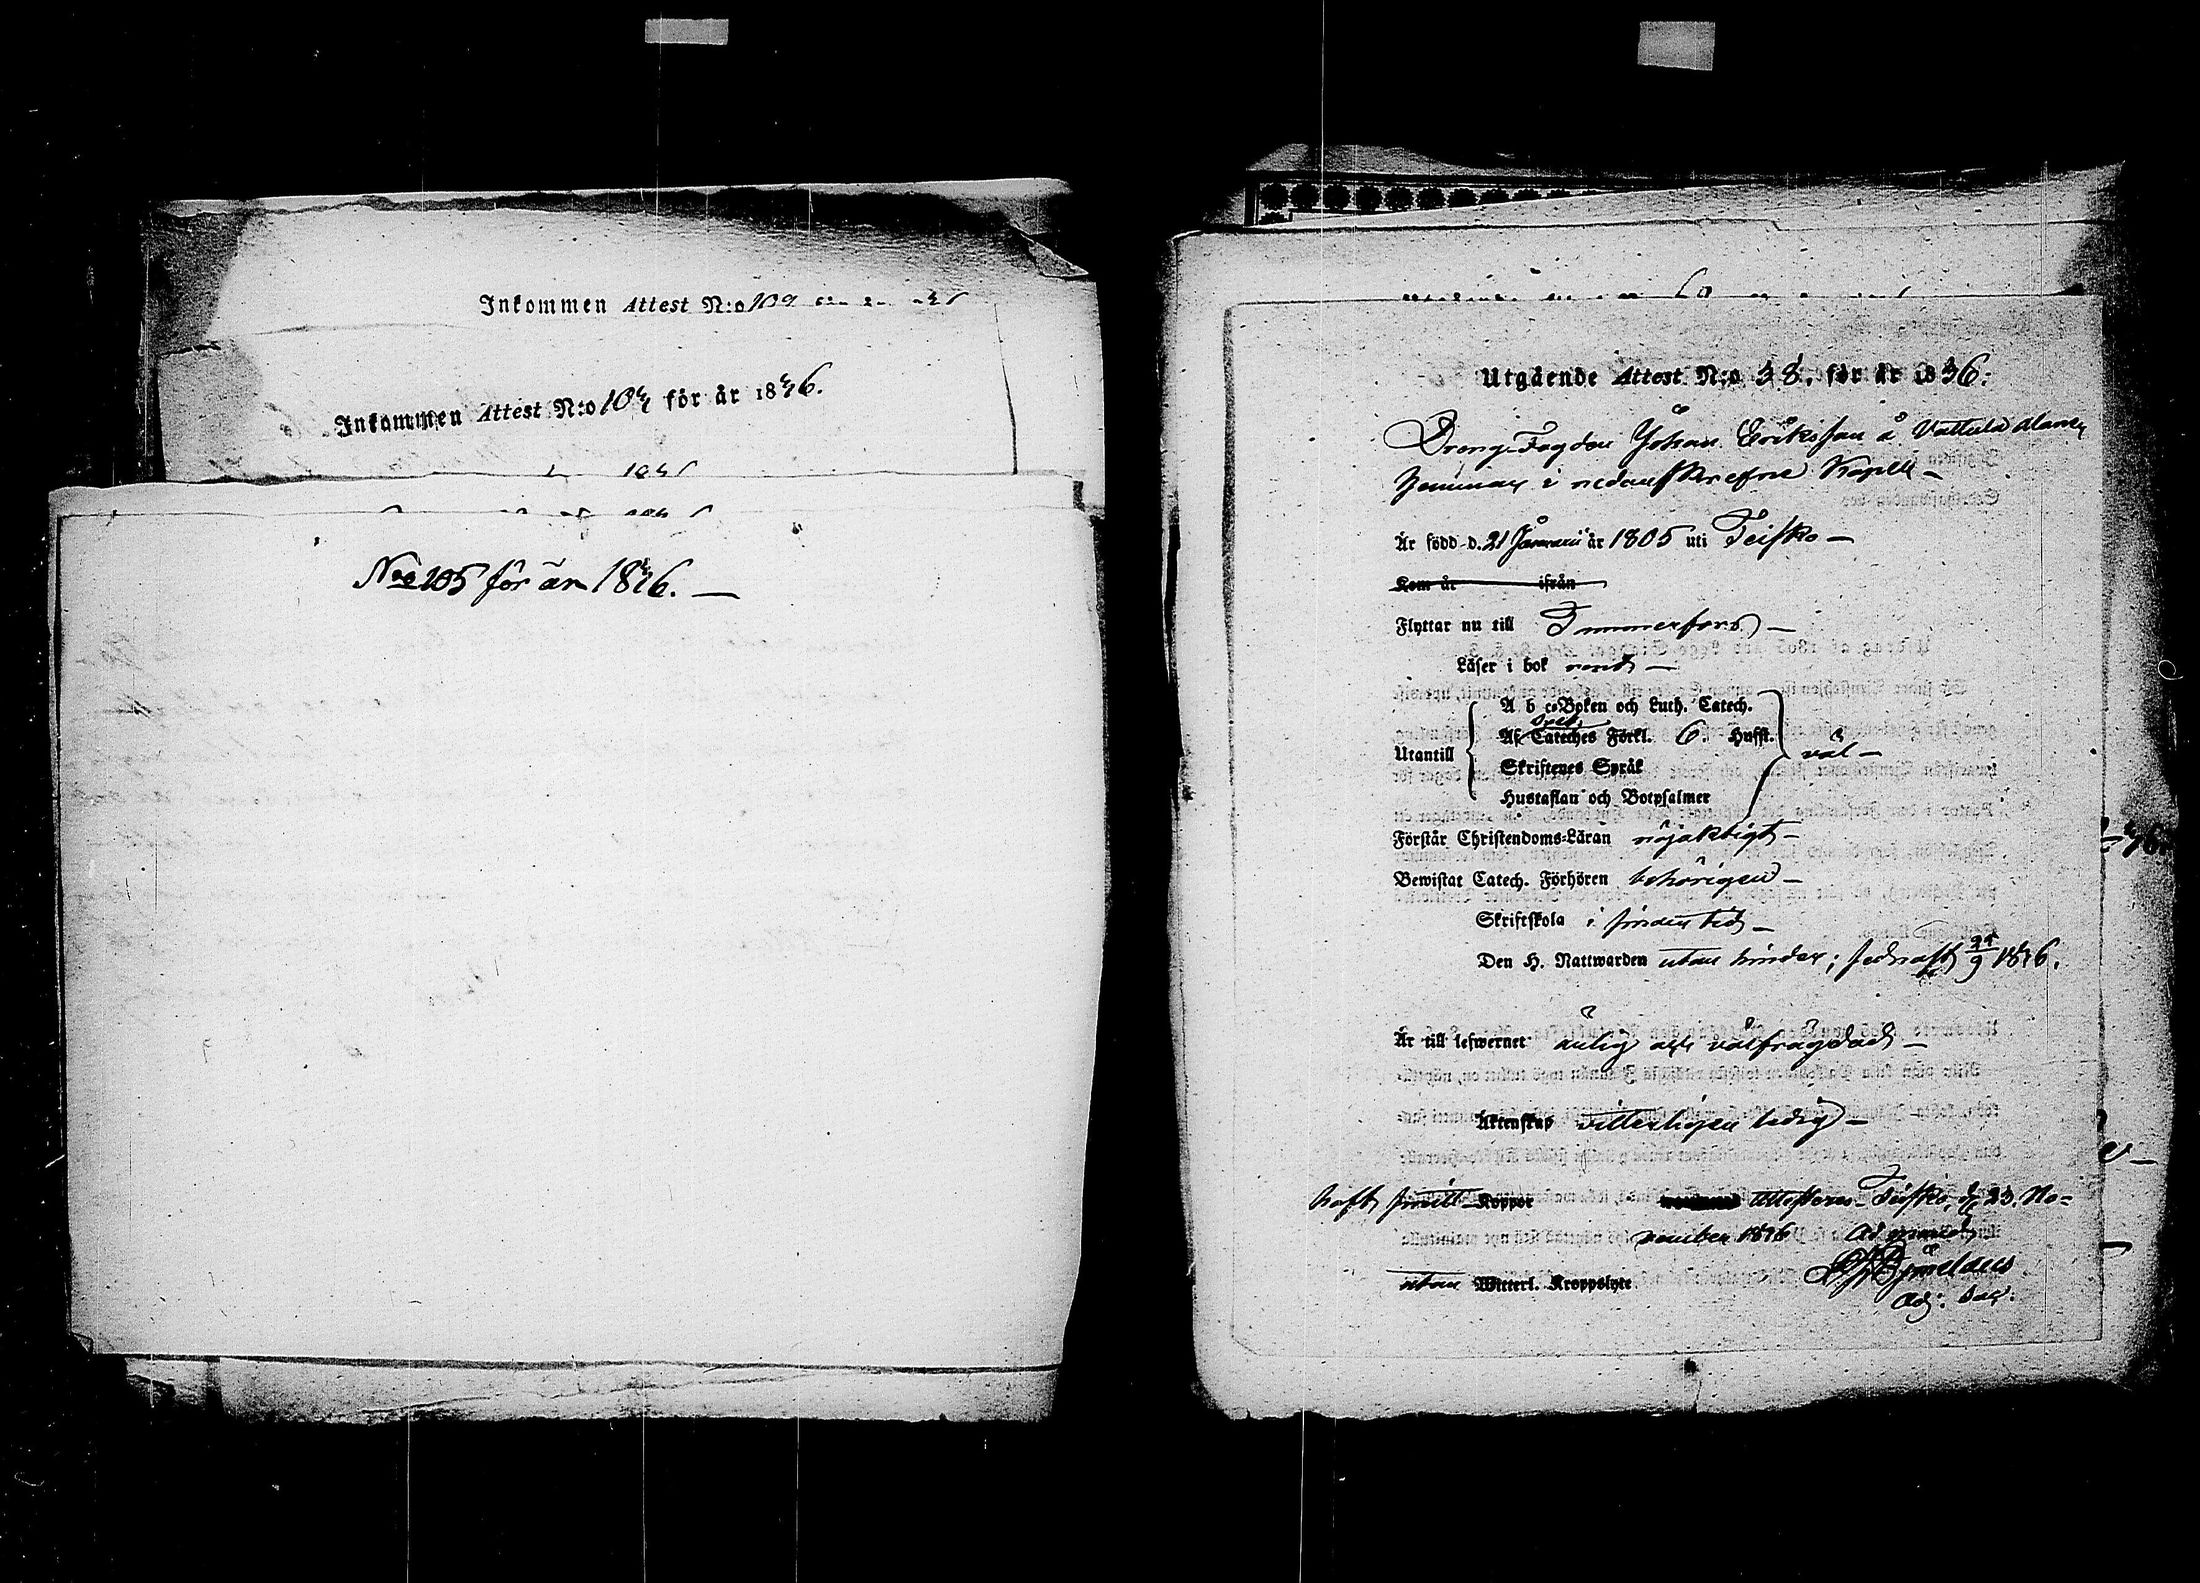 Inkommen Attest N:o 109
Inkommen Attest N:o 104 för år 1836.
No 105 för år 1836. —
Utgående Attest N:o 38. för år 1836.
Dreng-Fogden Johan Eriksson å Vattula
i nedanskrefne Kapell —
Är född d. 21 Januarii år 1805 uti Teisko —
Kom år ifrån
Flyttar nu till Tammerfors —
Läser i bok rend —
A b c-Boken och Luth. Catech.
Utantill Af Cateches Förkl. 6. Hufst. väl —
Skriftenes Språk
Hustaflan och Botpsalmer
Förstår Christendoms-Läran nöjaktigt —
Bewistat Catech. Förhören behörigen —
Skriftskola i sinom tid —
Den H. Nattwarden utan hinder; sednast 25/9 1836.
Är till lefwernet ärlig och välfrägdad —
Äktenskap vitterligen ledig —
haft Koppor Attesteras. Teisko, d. 23. No-
vember 1836
utan Witterl. Kroppslyte
Adj. Sac.